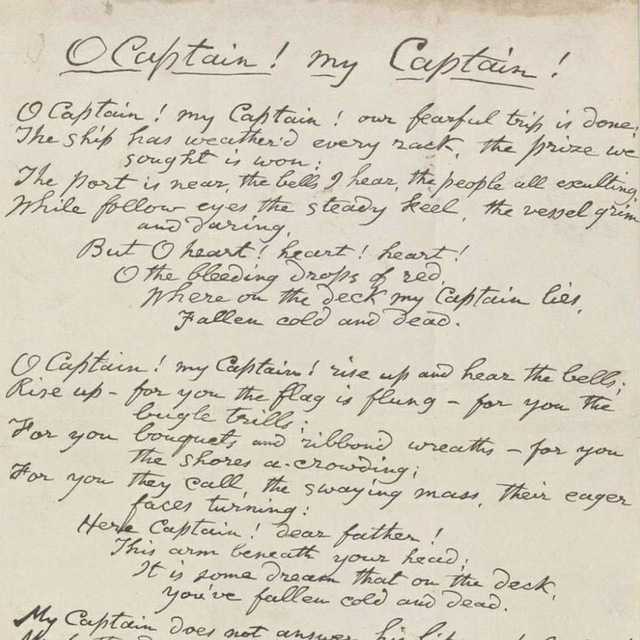 O Captain! my Captain!
O Captain! my Captain! our fearful trip is done;
The ship has weather'd every rack, the prize we
sought is won;
The port is near, the bells I hear, the people all exulting,
While follow eyes the steady keel, the vessel grim
and daring,
But O heart! heart! heart!
O the bleeding drops of red,
Where on the deck my Captain lies,
Fallen cold and dead.
O Captain! my Captain! rise up and hear the bells;
Rise up – for you the flag is flung – for you the
bugle trills;
For you bouquets and ribbon'd wreaths – for you
the shores a-crowding;
For you they call, the swaying mass, their eager
faces turning:
Here Captain! dear father!
This arm beneath your head;
It is some dream that on the deck,
You've fallen cold and dead.
My Captain does not answer, his